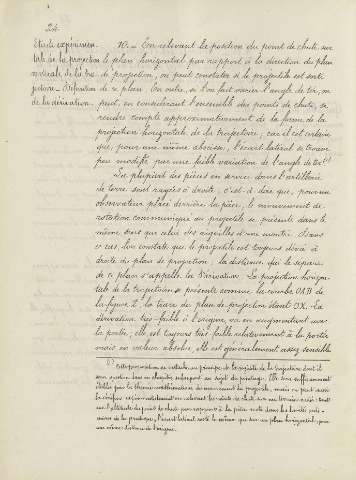 24.
Etude expérimen- 10. _ En relevant la position du point de chute, sur
tale de la projection le plan horizontal par rapport à la direction du plan
horizontale de la tra- de projection, on peut constater si le projectile est sorti
jectoire. _ Définition de ce plan. En outre, si l'on fait varier l'angle de tir, on
de la dérivation. peut, en considérant l'ensemble des points de chute, se
rendre compte approximativement de la forme de la
projection horizontale de la trajectoire; car il est certain
que, pour une même abscisse, l'écart latéral se trouve
peu modifié par une faible variation de l'angle de tir (1)
La plupart des pièces en service dans l'artillerie
de terre sont rayées à droite; c'est-à-dire que, pour un
observateur placé derrière la pièce, le mouvement de
rotation communiqué au projectile se présente dans le
même sens que celui des aiguilles d'une montre. Dans
ce cas, l'on constate que le projectile est toujours dévié à
droite du plan de projection; la distance qui le sépare
de ce plan s'appelle la Dérivation. La projection horizon-
tale de la trajectoire se présente comme la courbe
de la figure, la trace du plan de projection étant OX. La
dérivation, très faible à l'origine, va en augmentant avec
la portée; elle est toujours très faible relativement à la portée
mais en valeur absolue, elle est généralement assez sensible
(1) Cette proposition se rattache au principe de la rigidité de la trajectoire dont il
sera question dans un chapitre subséquent au sujet du pointage. Elle sera suffisamment
établie par la théorie mathématique du mouvement du projectile, mais on peut aussi
la vérifier expérimentalement en relevant les points de chute sur un terrain
l'altitude du point de chute par rapport à la pièce reste dans les limites
de la pratique, l'écart latéral reste le même que sur un plan horizontal, pour
une même distance de l'origine.